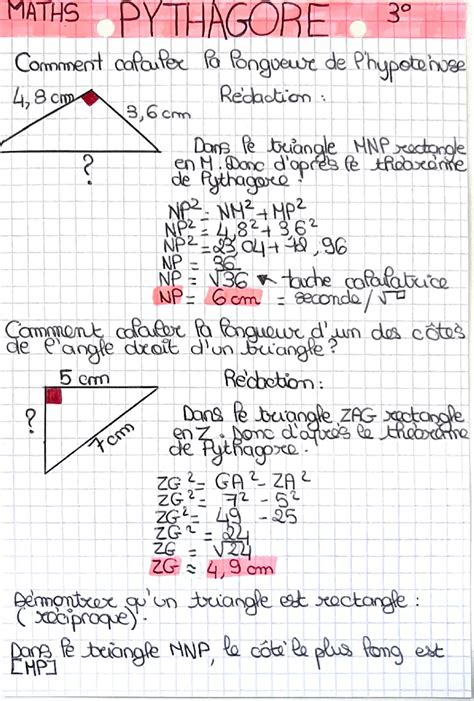 MATHS PYTHAGORE 3°
Commment calculer la longueur de l'hypoténuse
4,8 cm
3,6 cm
?
Rédaction :
Dans le triangle MNP rectangle
en M. Donc d'après le théorème
de Pythagore :
NP² = NM² + MP²
NP² = 4,8² + 3,6²
NP² = 23,04 + 12,96
NP = 36
NP = √36 ↖ touche calculatrice
NP = 6 cm = seconde/√
Comment calculer la longueur d'un des côtés
de l'angle droit d'un triangle ?
5 cm
?
7 cm
Rédaction :
Dans le triangle ZAG rectangle
en Z. Donc d'après le théorème
de Pythagore.
ZG² = GA² - ZA²
ZG² = 7² - 5²
ZG² = 49 - 25
ZG² = 24
ZG = √24
ZG ≈ 4,9 cm
Démontrer qu'un triangle est rectangle :
(réciproque).
Dans le triangle MNP, le côté le plus long est
[MP]